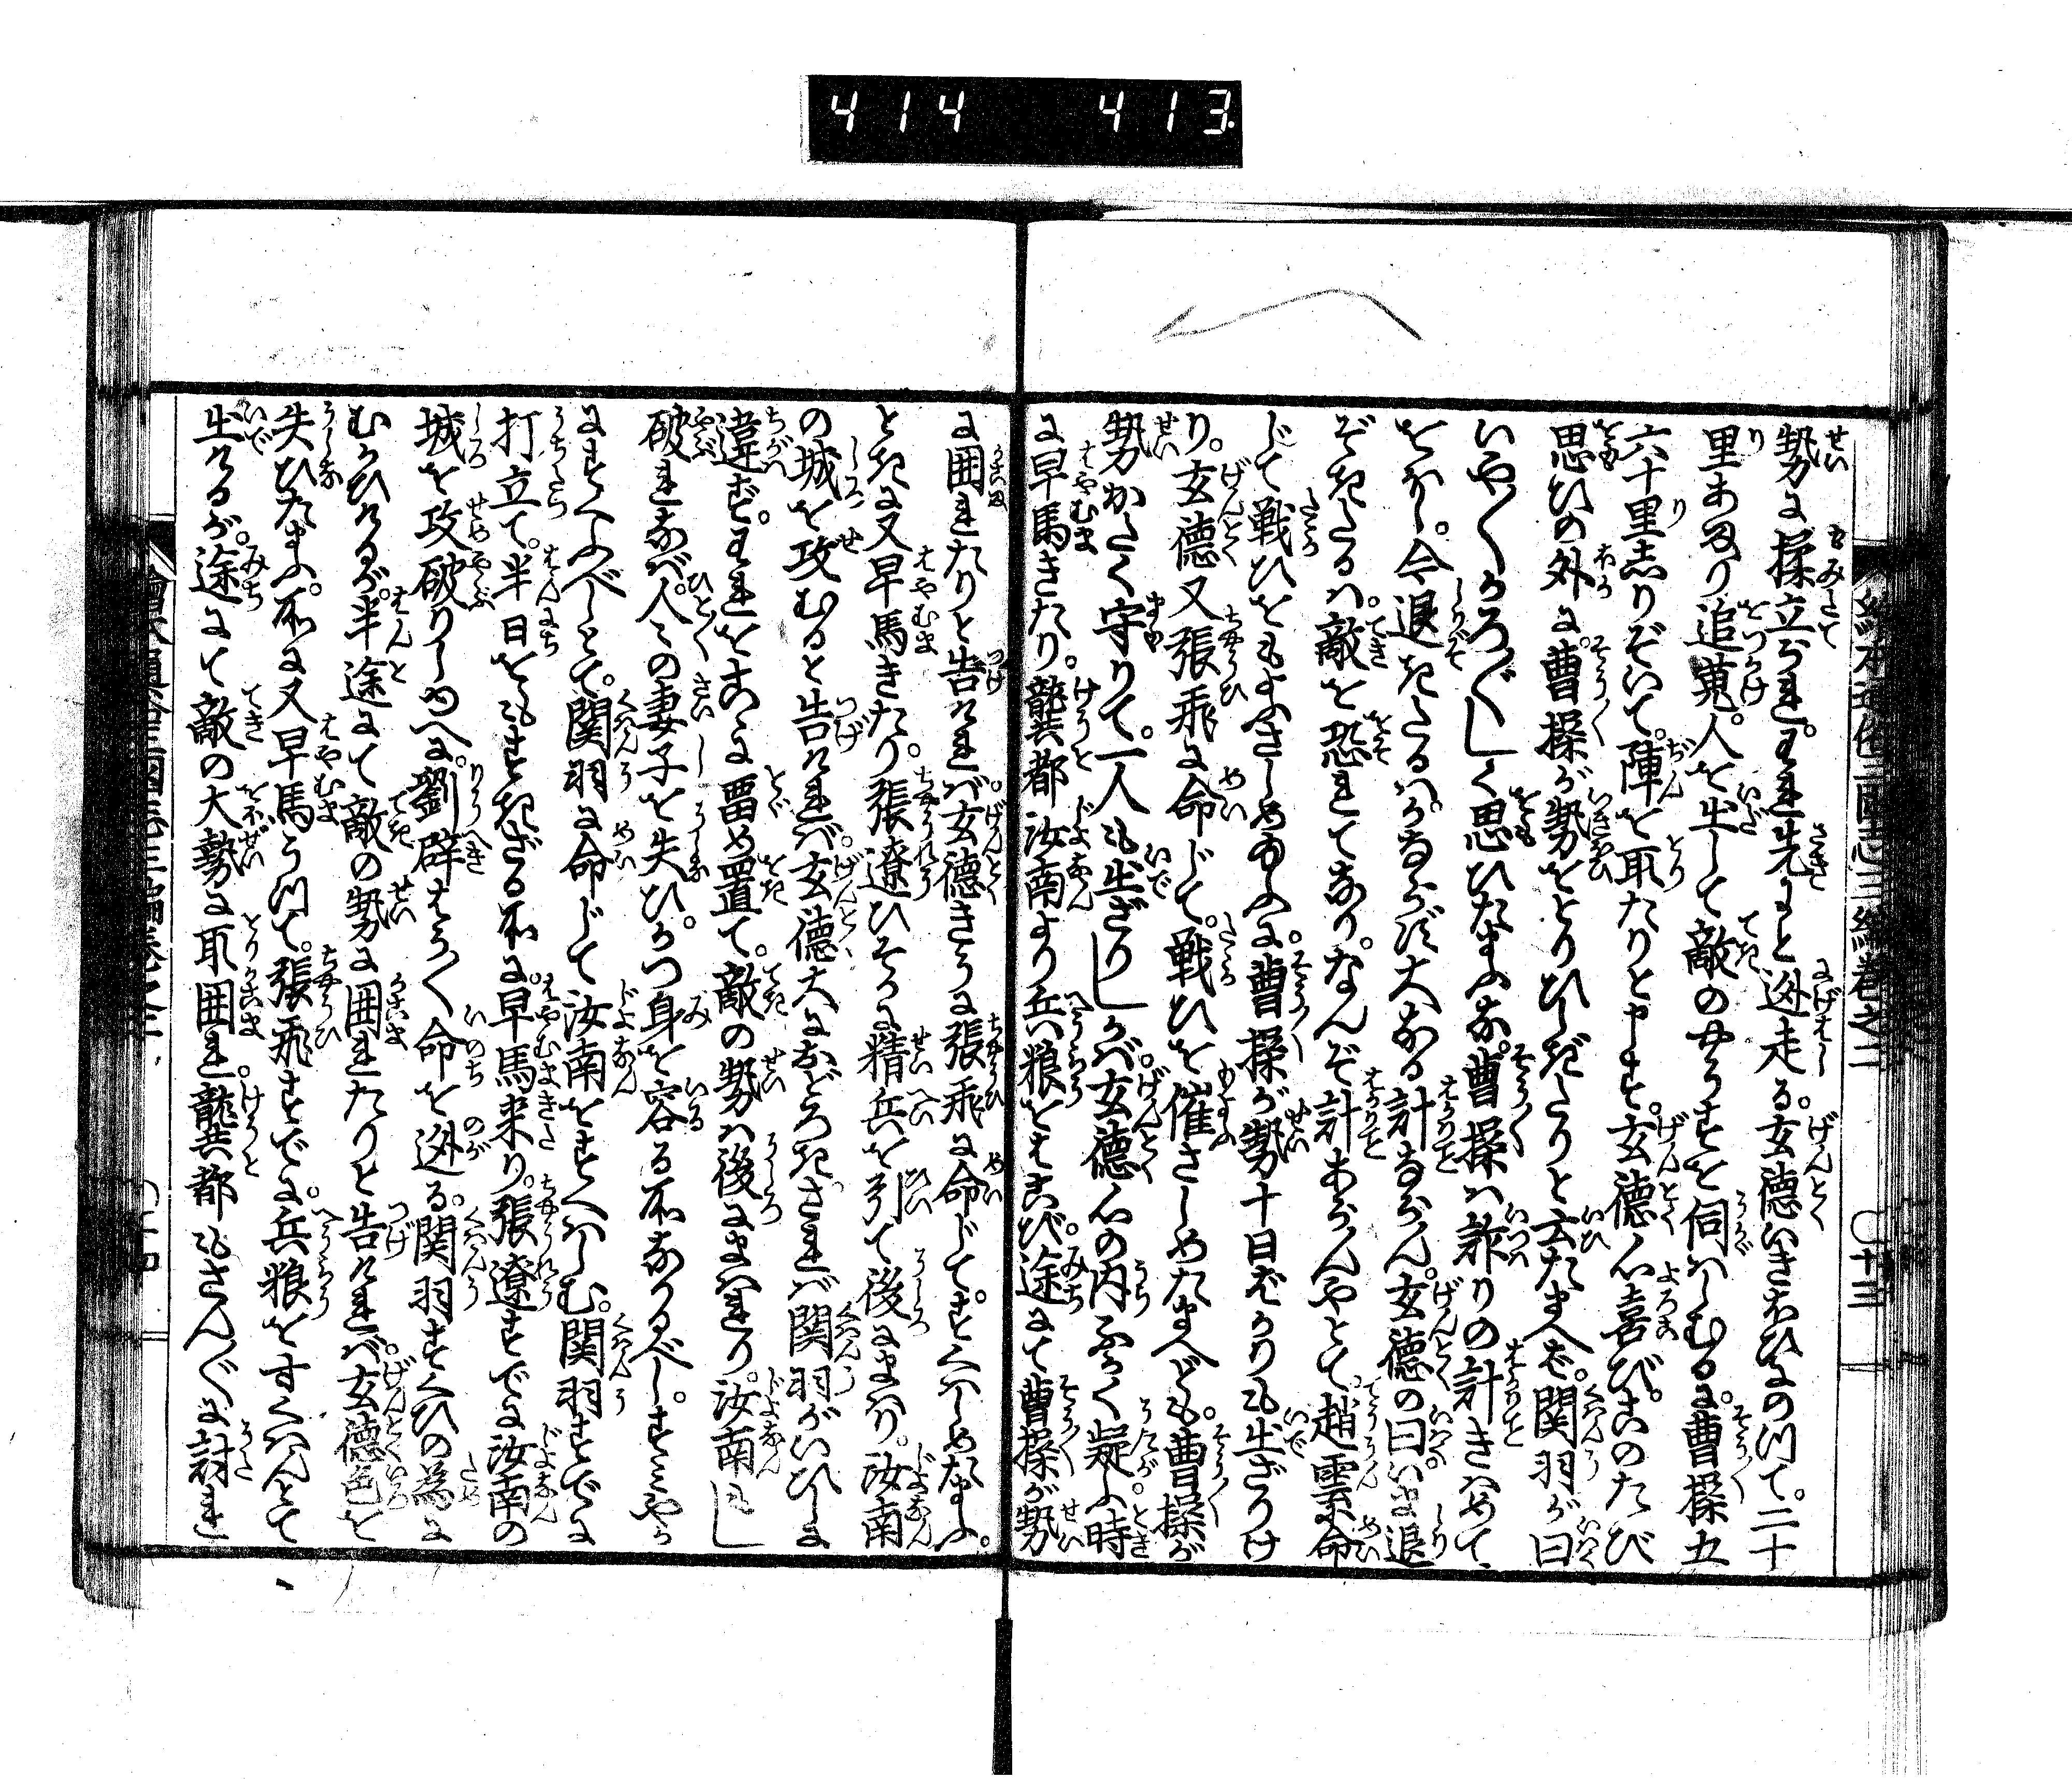 414 413
繪本通俗三國志三編卷之二 〇十三
勢に揉立られ。われ先にと迯走る。玄徳いきおひにのつて。二十
里あまり追蒐。人を出して敵のやうすを伺はしむるに。曹操五
六十里しりぞいて。陣を取たりと申す。玄徳心喜び。このたび
思ひの外に曹操が勢をとりひしぎたりと云たまへば。関羽が曰
いや〳〵かろ〴〵しく思ひたまふな。曹操は詐りの計きはめて
をほし。今退きたるは。かならず大なる計ならん。玄徳の曰いま退
ぞきたるは。敵を恐れてなり。なんぞ計あらんやとて。趙雲に命
じて戦ひをもよほさしめ給ふに。曹操が勢十日ばかりも出ざりけ
り。玄徳又張飛に命じて。戦ひを催さしめたまへども。曹操が
勢かたく守りて。一人も出ざりしかば。玄徳心の内ふかく疑ふ時
に早馬きたり。龔都汝南より兵粮をはこび。途にて曹操が勢
に囲れたりと告ければ。玄徳きうに張飛に命じて。すくはしめたまふ。
ときに又早馬きたり。張遼ひそかに精兵を引て後にまはり。汝南
の城を攻むると告ければ。玄徳大におどろき。されば関羽がいひしに
違ず。われをこゝに畱め置て。敵の勢は後にまはれり。汝南もし
破れなば。人々の妻子を失ひ。かつ身を容る所なかるべし。すみやか
にすくふべしとて。関羽に命じて汝南をすくはしむ。関羽すでに
打立て。半日をもすぎざる所に。早馬来り。張遼すでに汝南の
城を攻破りしゆへに。劉辟はう〳〵命を迯る。関羽すくひの為に
むかひけるが。半途にて敵の勢に囲れたりと告ければ。玄徳色を
失ひたまふ。所に又早馬うつて。張飛すでに。兵粮をすくはんとて
出けるが。途にて敵の大勢に取囲れ。龔都もさん〴〵に討れ